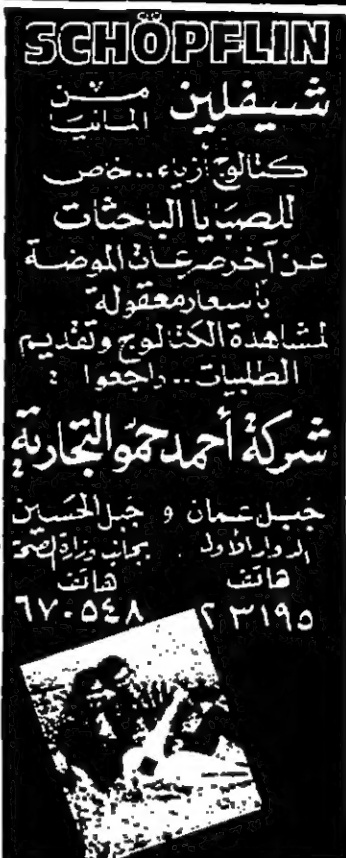 SCHÖPFLIN
شيفلين من المانيا
كتالوج أزياء.. خاص
للصبايا الباحثات
عن آخر صرعات الموضة
بأسعار معقولة
لمشاهدة الكتالوج وتقديم
الطلبيات.. راجعوا :
شركة أحمد حمو التجارية
جبل عمان و جبل الحسين
الدوار الاول . بجانب وزارة الصحة
هاتف هاتف
٢٣١٩٥ ٦٧٠٥٤٨